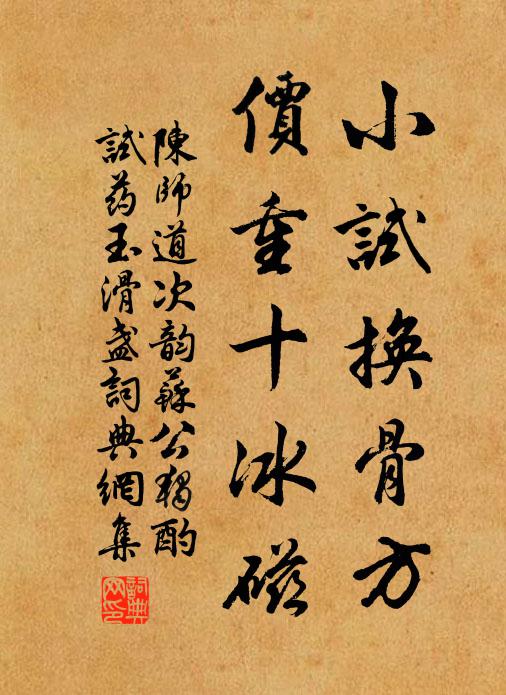 小試換骨方
價重十冰磁
陳師道次韵蘇公獨酌
試药玉滑盞詞典網集
詞典网印